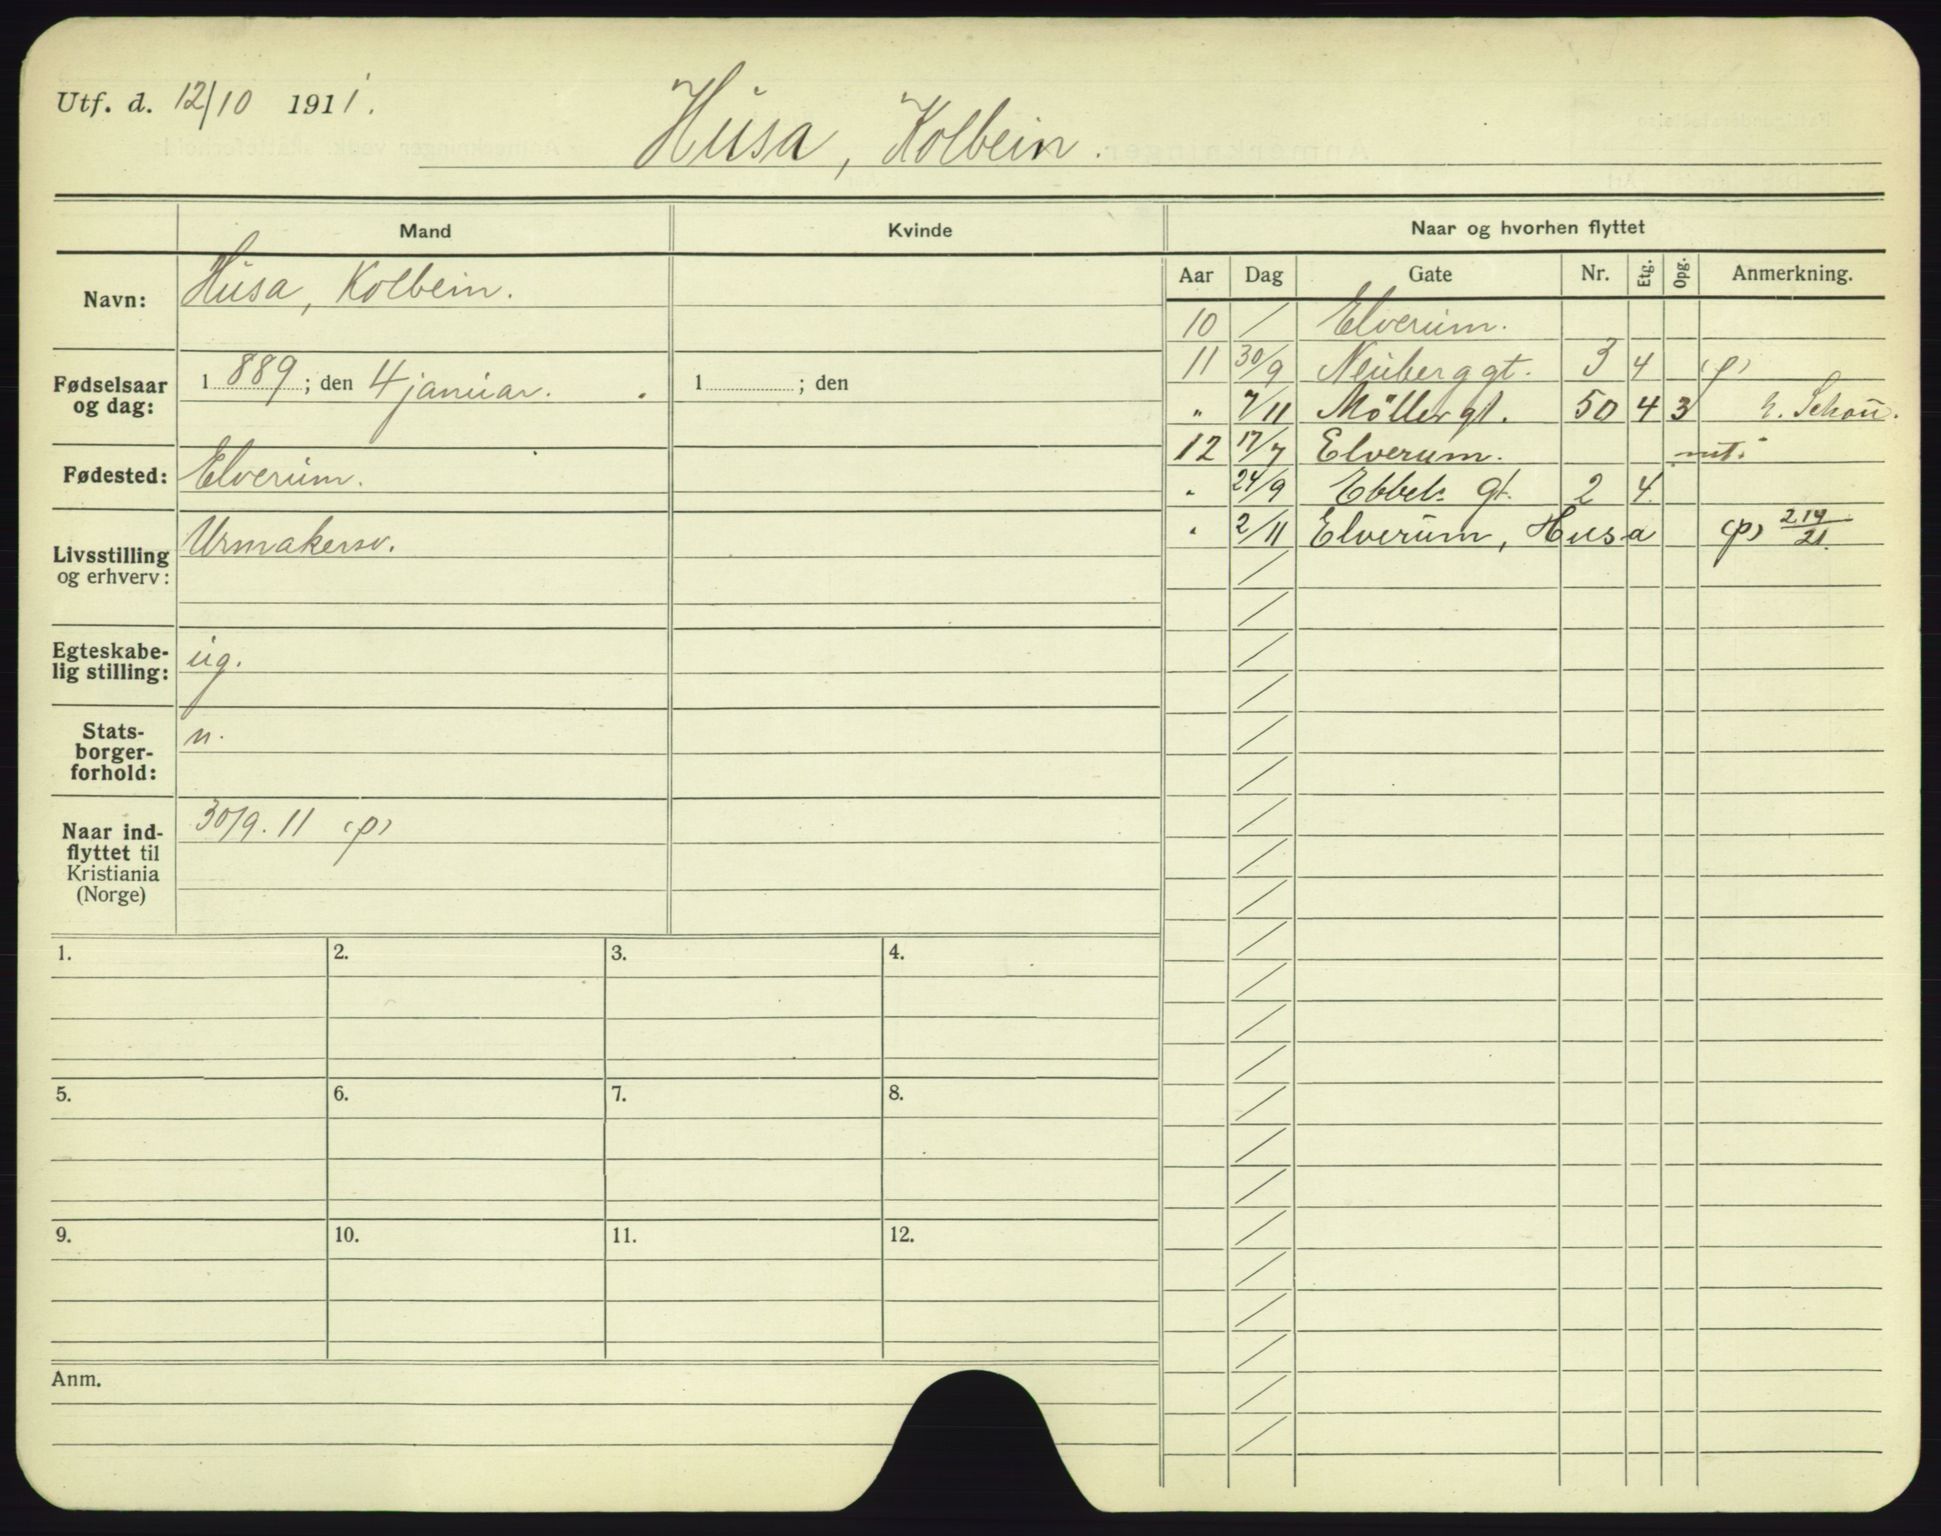 Utf. d. 12/10 1911.
Husa, Kolbein.
Mand Kvinde Naar og hvorhen flyttet
Aar Dag Gate Nr. Etg. Opg. Anmerkning.
Navn: Husa, Kolbein.
Fødselsaar og dag: 1889; den 4 januar. 1 ; den
Fødested: Elverum.
Livsstilling og erhverv: Urmakersv.
Egteskabe-
lig stilling: ug.
Stats-
borger-
forhold: n.
Naar ind-
flyttet til
Kristiania
(Norge) 30/9. 11 (p)
10 / Elverum.
11 30/9 Neuberggt. 3 4 (p)
" 7/11 Möllergt. 50 4 3 h. Schou.
12 17/7 Elverum. mt.
" 24/9 Ebbels gt. 2 4
" 2/11 Elverum, Husa (p) 219/21.
1. 2. 3. 4.
5. 6. 7. 8.
9. 10. 11. 12.
Anm.